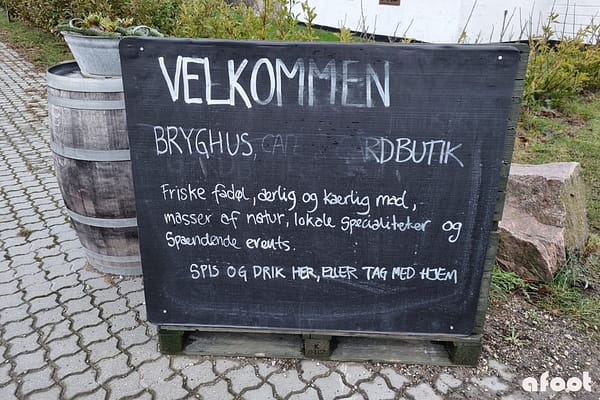 VELKOMMEN
BRYGHUS, CAFE RDBUTIK
Friske fadøl, ærlig og kærlig mad,
masser af natur, lokale specialiteter og
Spændende events.
SPIS OG DRIK HER, ELLER TAG MED HJEM
afoot